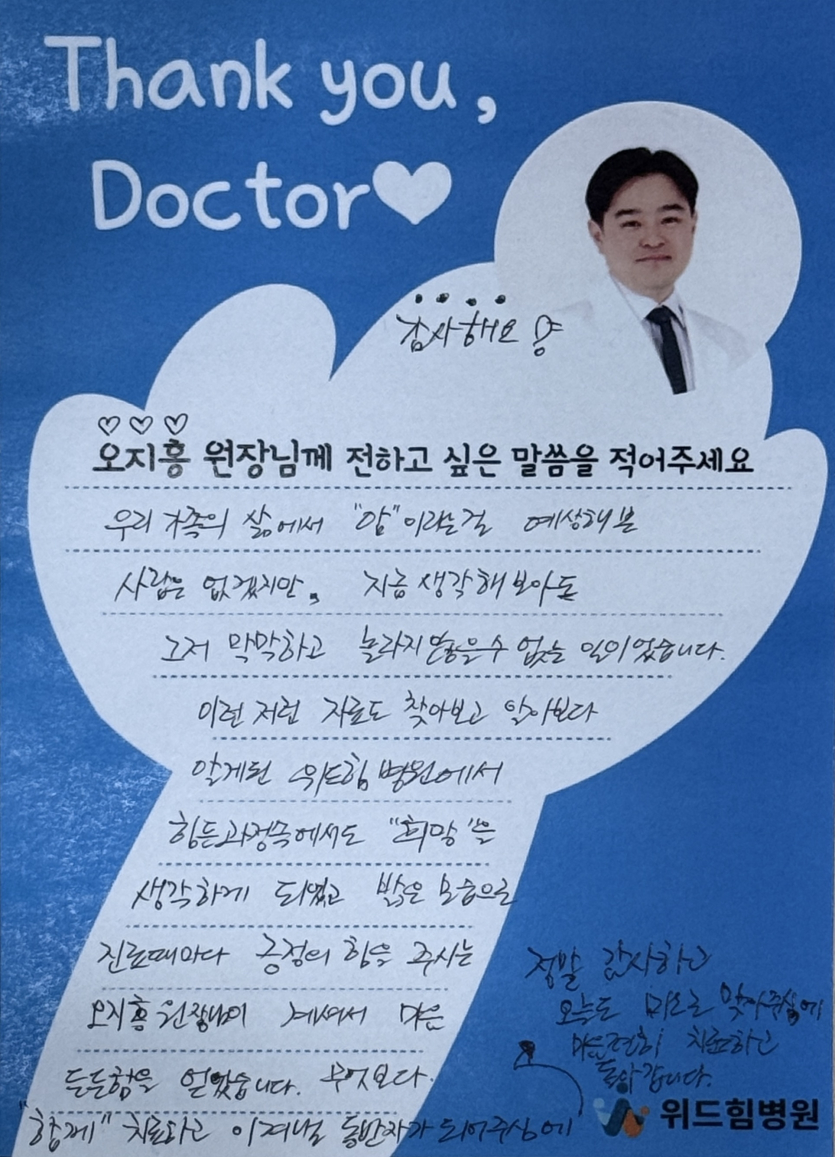 Thank you,
Doctor♥
감사해요
♡♡♡
오지홍 원장님께 전하고 싶은 말씀을 적어주세요
우리 가족의 삶에서 "암"이라는걸 예상해본
사람은 없겠지만, 지금 생각해보아도
그저 막막하고 놀라지않을수 없는 일이었습니다.
이런 저런 자료도 찾아보고 알아보다
알게된 위드힘 병원에서
힘든과정속에서도 "희망"을
생각하게 되었고 밝은 모습으로
진료때마다 긍정의 힘을 주시는
오지홍원장님이 계셔서 많은
든든함을 얻었습니다. 무엇보다.
"함께" 치료하고 이겨낼 동반자가 되어주심에
정말 감사하고
오늘도 미소로 맞아주심에
치료하고
돌아갑니다.
위드힘병원